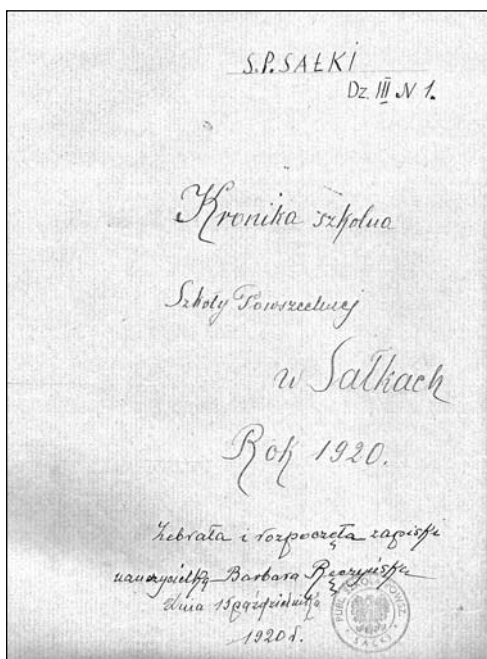 S.P. SAŁKI
Dz. III N 1.
Kronika szkolna
Szkoły Powszechnej
w Sałkach
Rok 1920.
Zebrała i rozpoczęła zapiski
nauczycielka Barbara
dnia 15 października
1920 r.
PUBL. SZKOŁA POWSZ.
SAŁKI